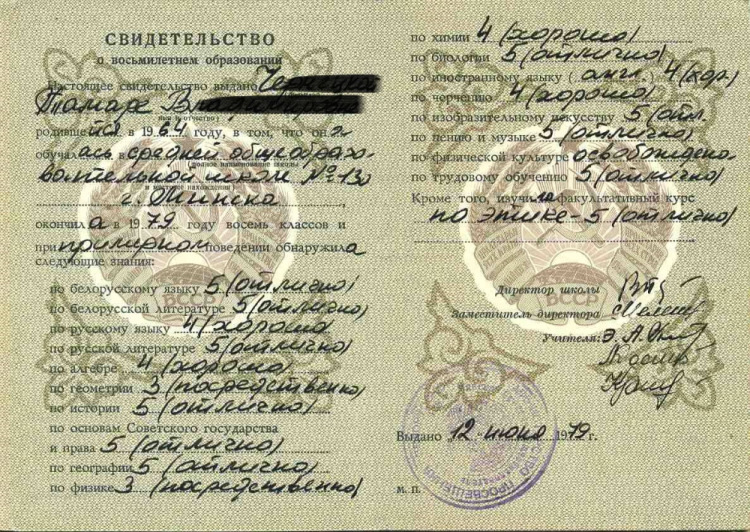 СВИДЕТЕЛЬСТВО
о восьмилетнем образовании
Настоящее свидетельство выдано
Тамаре
(имя и отчество)
родившейся в 1964 году, в том, что она
обучалась в средней общеобразо-
(полное наименование школы
вательной школе № 130
и местонахождение)
г. Минска
окончила в 1979 году восемь классов и
при примерном поведении обнаружила
следующие знания:
по белорусскому языку 5 (отлично)
по белорусской литературе 5 (отлично)
по русскому языку 4 (хорошо)
по русской литературе 5 (отлично)
по алгебре 4 (хорошо)
по геометрии 3 (посредственно)
по истории 5 (отлично)
по основам Советского государства
и права 5 (отлично)
по географии 5 (отлично)
по физике 3 (посредственно)
по химии 4 (хорошо)
по биологии 5 (отлично)
по иностранному языку (англ.) 4 (хор)
по черчению 4 (хорошо)
по изобразительному искусству 5 (отл.
по пению и музыке 5 (отлично)
по физической культуре освобождена
по трудовому обучению 5 (отлично)
Кроме того, изучила факультативный курс
по этике - 5 (отлично)
БССР
БССР
Директор школы
Заместитель директора
Учителя:
Выдано 12 июня 1979 г.
М. П.